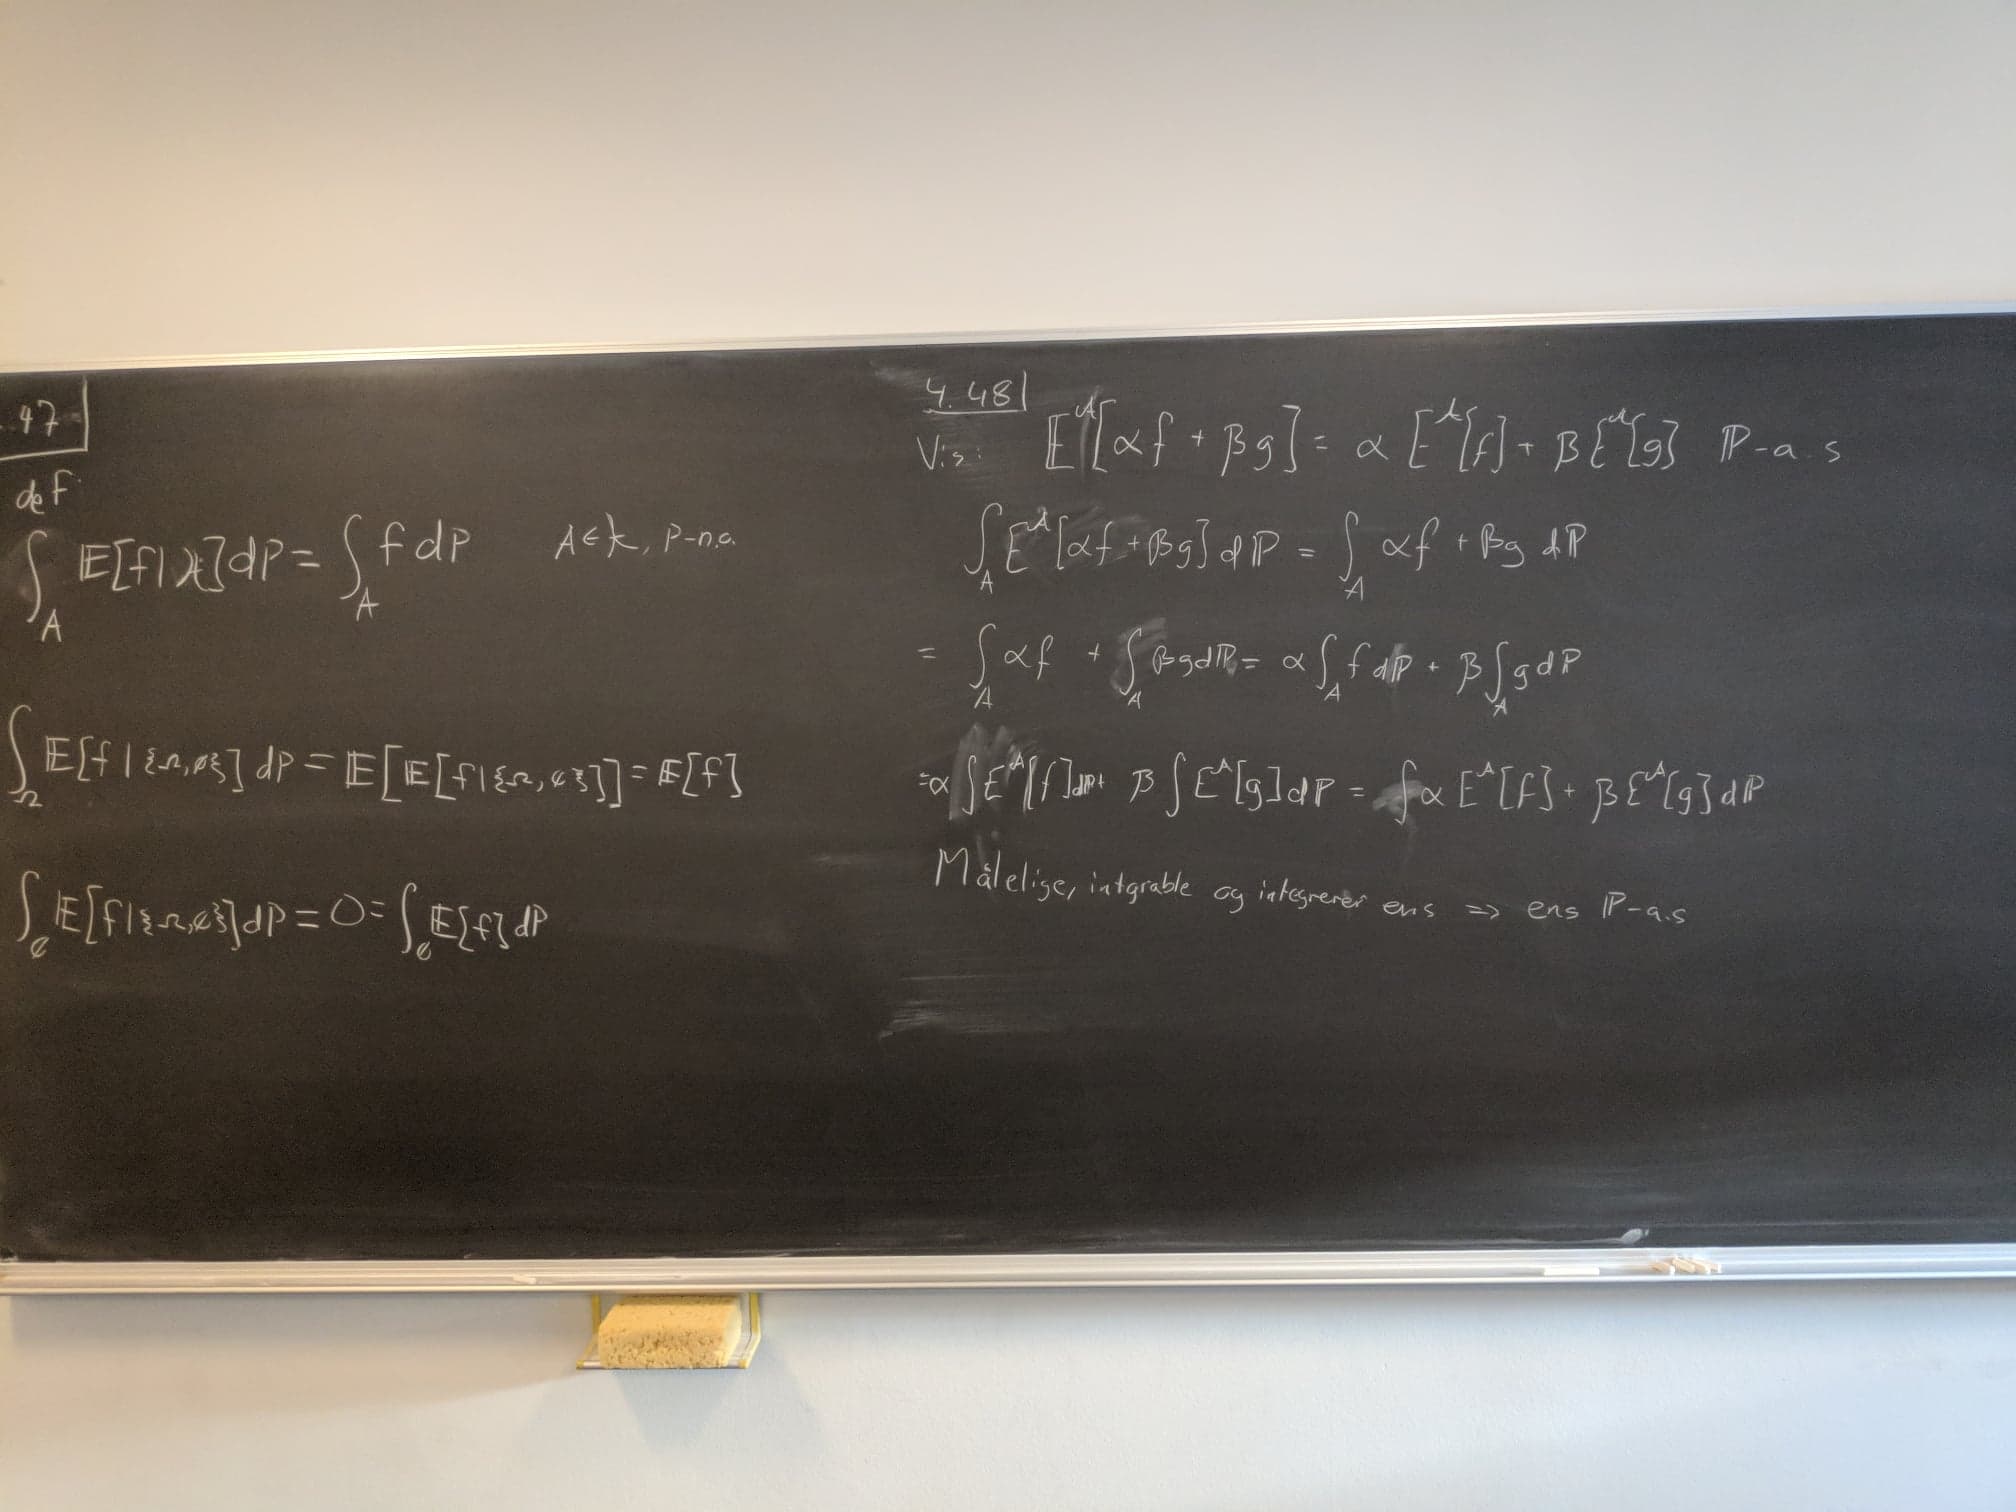 .47
def
∫_A 𝔼[f|𝒦]dP = ∫_A f dP A∈k, P-n.a.
∫_Ω 𝔼[f|{Ω,∅}] dP = 𝔼[𝔼[f|{Ω,∅}]] = 𝔼[f]
∫_∅ 𝔼[f|{Ω,∅}]dP = 0 = ∫_∅ 𝔼[f] dP
4.48
Vis: E^𝒜[αf + βg] = α E^𝒜[f] + βE^𝒜[g] ℙ-a.s
∫_A E^𝒜[αf + βg] dℙ = ∫_A αf + βg dℙ
= ∫_A αf + ∫_A βg dℙ = α ∫_A f dℙ + β ∫_A g dℙ
= α ∫ E^𝒜[f] dℙ + β ∫ E^𝒜[g] dℙ = ∫ α E^𝒜[f] + βE^𝒜[g] dℙ
Målelige, intgrable og integrerer ens => ens ℙ-a.s